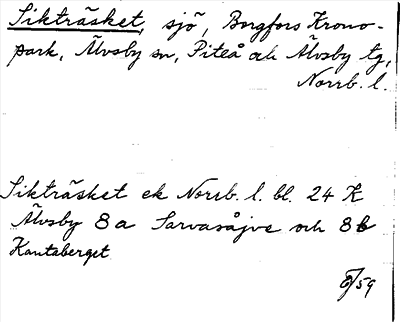 Sikträsket, sjö, Borgfors Krono-
park, Älvsby sn, Piteå och Älvsby tg,
Norrb. l.
Sikträsket ek Norrb. l. bl. 24 K
Älvsby 8 a Sarvasåjve och 8 b
Kantaberget
/59